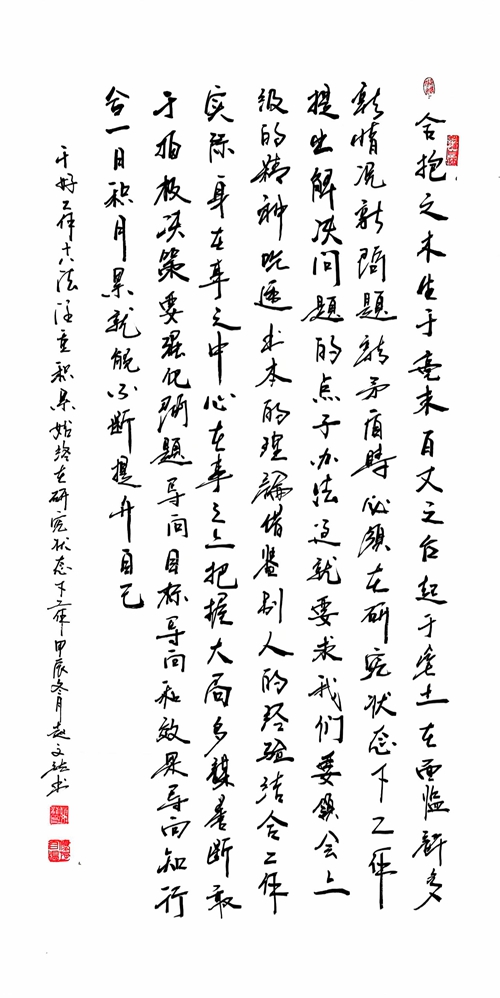 合抱之木生于毫末百丈之台起于垒土在面临许多
新情况新问题新矛盾時必须在研究状态下工作
提出解决问题的点子办法这就要求我们要领会上
级的精神吃透书本的理論借鉴别人的经验结合工作
实际身在事之中心在事之上把握大局多谋善断敢
于拍板决策要强化问题导向目标导向和效果导向知行
合一日积月累就能不断提升自己
干好工作十八法注重积累始终在研究状态下工作甲辰冬月赵文书